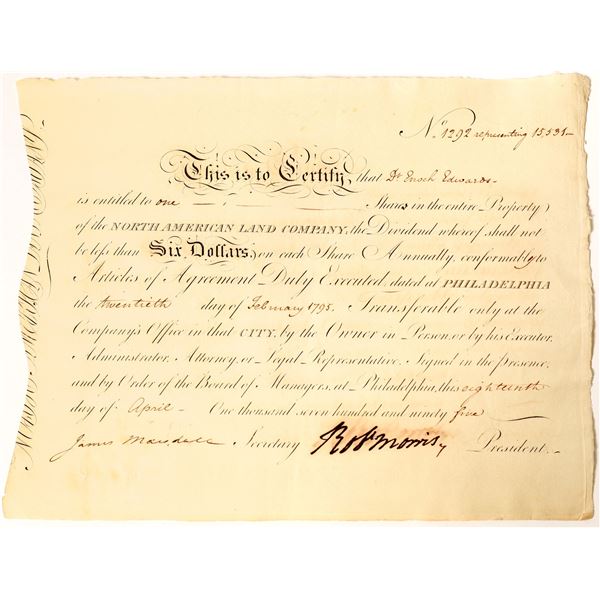 No. 1292 representing 15,531—
This is to Certify, that Dr Enoch Edwards—
is entitled to one Share in the entire Property
of the NORTH AMERICAN LAND COMPANY, the Dividend whereof shall not
be less than Six Dollars, on each Share Annually, conformably to
Articles of Agreement Duly Executed, dated at PHILADELPHIA
the twentieth day of February 1795. Transferable only at the
Company's Office in that CITY, by the Owner in Person, or by his Executor,
Administrator, Attorney, or Legal Representative. Signed in the presence,
and by Order of the Board of Managers, at Philadelphia, this eighteenth
day of April— One thousand seven hundred and ninety five
James Marshall Secretary Robt Morris President.